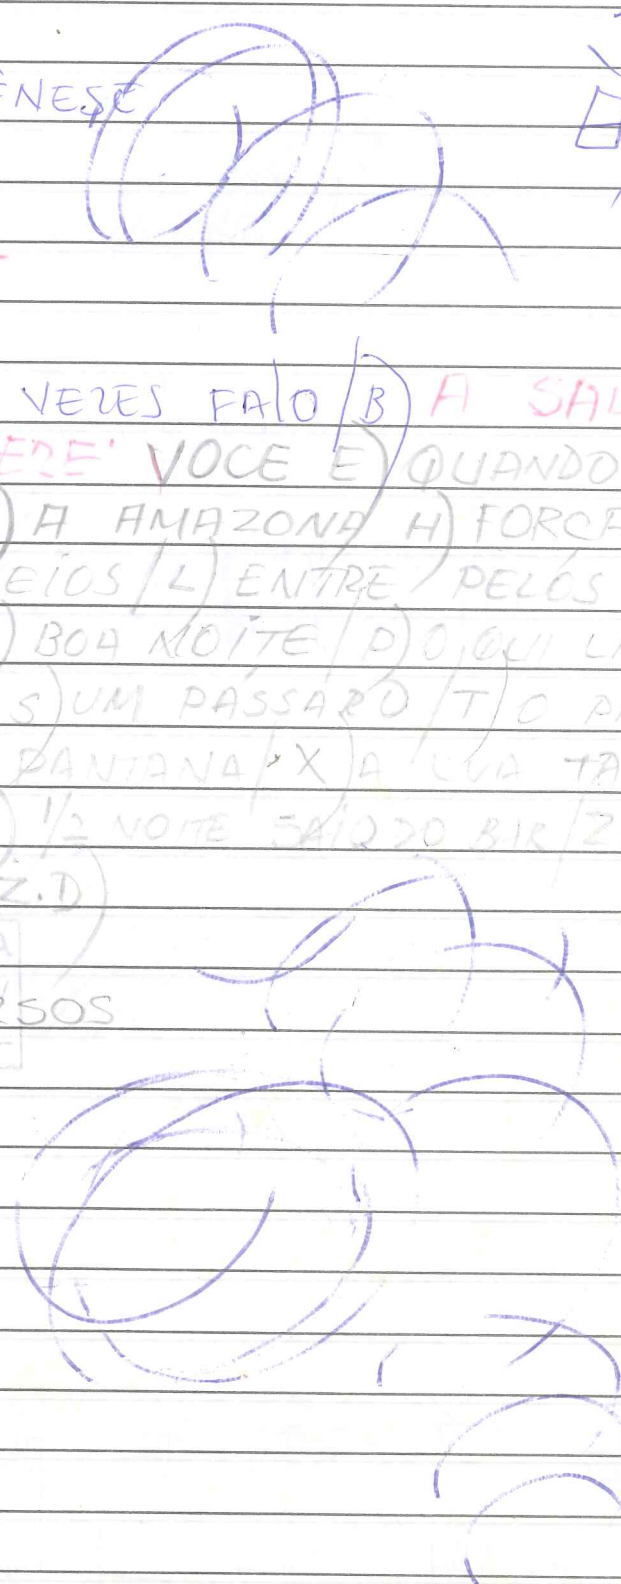 ÊNESE
VEZES FALO / B) A SAL
VOCE E) QUANDO
) A AMAZONA H) FORÇA
EIOS / L) ENTRE PELOS
) BOA NOITE / P) O QUI LI
S) UM PASSARO / T) O PA
PANTANA / X) A LUA TA
) 1/2 NOITE / Z
Z.D)
RSOS